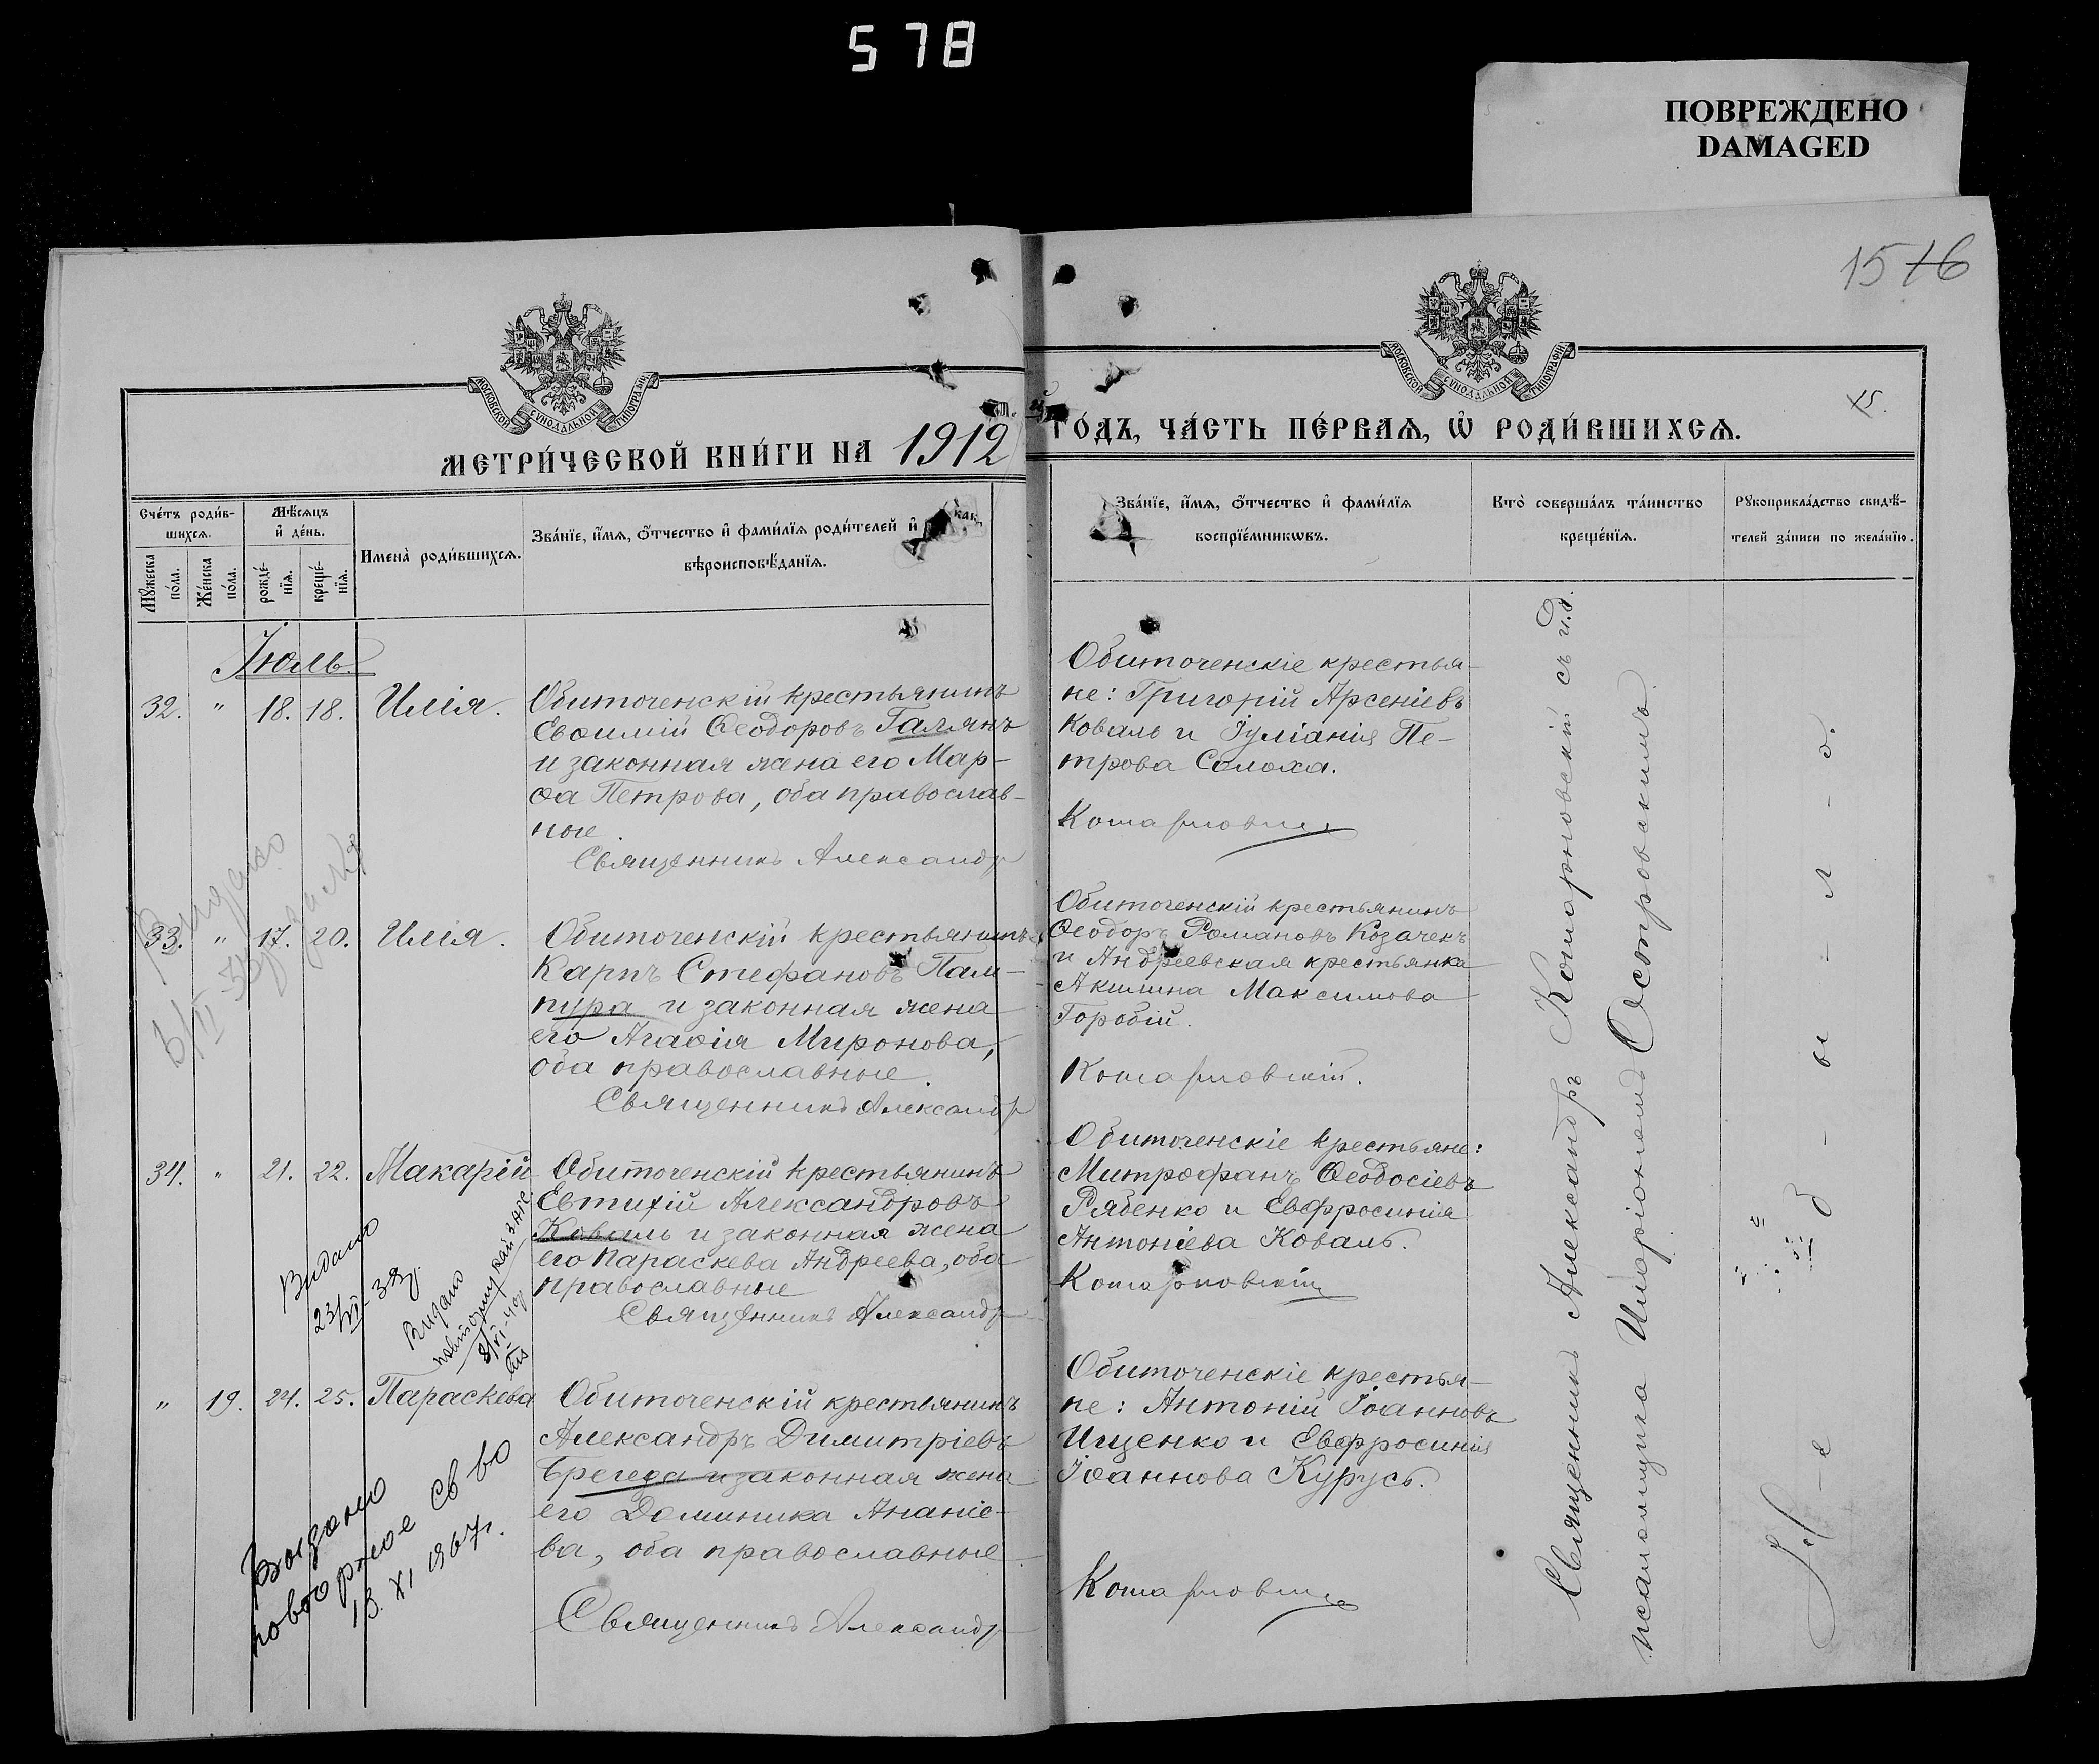 578
ПОВРЕЖДЕНО
DAMAGED
15 16
15.
МОСКОВСКОЙ СУНОДАЛЬНОЙ ТИПОГРАФІИ
МОСКОВСКОЙ СУНОДАЛЬНОЙ ТИПОГРАФІИ
МЕТРИ́ЧЕСКОЙ КНИ́ГИ НА 1912
ГО́ДЪ, ЧА́СТЬ ПЕ́РВАЯ, Ѡ РОДИ́ВШИХСЯ.
Сче́тъ роди́в-
шихся.
Мѣ́сяцъ
и де́нь.
Мꙋ́жеска
по́ла.
Же́нска
по́ла.
рожде́-
нїя.
креще́-
нїя.
Имена̀ роди́вшихся.
Зва́нїе, и́мя, ѻ́тчество и фами́лїя роди́телей и
вѣроисповѣ́данїя.
Зва́нїе, и́мя, ѻ́тчество и фами́лїя
воспрїе́мникѡвъ.
Кто̀ соверша́лъ та́инство
креще́нїя.
Рꙋкоприкла́дство свидѣ́-
телей за́писи по жела́нїю.
Іюль.
32. " 18. 18. Илія.
Обиточенскій крестьянинъ
Евѳимій Ѳеодоровъ Галянъ
и законная жена его Мар-
ѳа Петрова, оба православ-
ные.
Священникъ Александръ
Обиточенскіе крестья-
не: Григорій Арсеніевъ
Коваль и Іуліанія Пе-
трова Солоха.
Комарновскій
33. " 17. 20. Илія.
Обиточенскій крестьянинъ
Карпъ Стефановъ Пам-
пура и законная жена
его Агаѳія Миронова,
оба православные.
Священникъ Александръ
Обиточенскій крестьянинъ
Ѳеодоръ Романовъ Козачекъ
и Андреевская крестьянка
Акилина Максимова
Горобій.
Комарновскій.
34. " 21. 22. Макарій
Обиточенскій крестьянинъ
Евтихій Александровъ
Коваль и законная жена
его Параскева Андреева, оба
православные
Священникъ Александръ
Обиточенскіе крестьяне:
Митрофанъ Ѳеодосіевъ
Рябенко и Евфросинія
Антоніева Коваль.
Комарновскій
Видано
23/VI-38
Видано
" 19. 24. 25. Параскева
Обиточенскій крестьянинъ
Александръ Димитріевъ
Брегеда и законная жена
его Доминика Ананіе-
ва, оба православные.
Священникъ Александръ
Обиточенскіе крестья-
не: Антоній Іоанновъ
Ищенко и Евфросинія
Іоаннова Курусь.
Комарновскій
Выдано
повторное св во
13. XI 1967г.
Священникъ Александръ Комарновскій съ и.д.
псаломщика Иларіономъ Островскимъ.
Н-е з-ы-л-о.